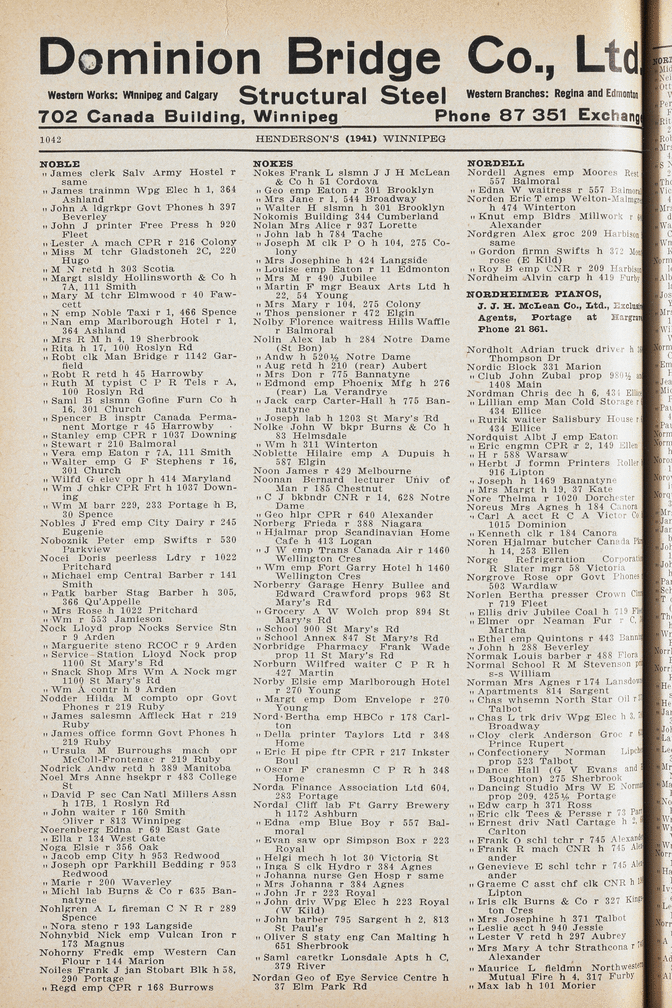 Dominion Bridge Co., Ltd.
Western Works: Winnipeg and Calgary Structural Steel Western Branches: Regina and Edmonton
702 Canada Building, Winnipeg Phone 87 351 Exchange
1042 HENDERSON'S (1941) WINNIPEG
NOBLE
" James clerk Salv Army Hostel r
same
" James trainmn Wpg Elec h 1, 364
Ashland
" John A ldgrkpr Govt Phones h 397
Beverley
" John J printer Free Press h 920
Fleet
" Lester A mach CPR r 216 Colony
" Miss M tchr Gladstone h 2C, 220
Hugo
" M N retd h 303 Scotia
" Margt slsldy Hollinsworth & Co h
7A, 111 Smith
" Mary M tchr Elmwood r 40 Faw-
cett
" N emp Noble Taxi r 1, 466 Spence
" Nan emp Marlborough Hotel r 1,
364 Ashland
" Mrs R M h 4, 19 Sherbrook
" Rita h 17, 100 Roslyn Rd
" Robt clk Man Bridge r 1142 Gar-
field
" Robt R retd h 45 Harrowby
" Ruth M typist C P R Tels r A,
100 Roslyn Rd
" Saml B slsmn Gofine Furn Co h
16, 301 Church
" Spencer B insptr Canada Perma-
nent Mortge r 45 Harrowby
" Stanley emp CPR r 1037 Downing
" Stewart r 210 Balmoral
" Vera emp Eaton r 7A, 111 Smith
" Walter emp G F Stephens r 16,
301 Church
" Wilfd G elev opr h 414 Maryland
" Wm J chkr CPR Frt h 1037 Down-
ing
" Wm M barr 229, 233 Portage h B,
30 Spence
Nobles J Fred emp City Dairy r 245
Eugenie
Noboznik Peter emp Swifts r 530
Parkview
Nocei Doris peerless Ldry r 1022
Pritchard
" Michael emp Central Barber r 141
Smith
" Patk barber Stag Barber h 305,
366 Qu'Appelle
" Mrs Rose h 1022 Pritchard
" Wm r 553 Jamieson
Nock Lloyd prop Nocks Service Stn
r 9 Arden
" Marguerite steno RCOC r 9 Arden
" Service Station Lloyd Nock prop
1100 St Mary's Rd
" Snack Shop Mrs Wm A Nock mgr
1100 St Mary's Rd
" Wm A contr h 9 Arden
Nodder Hilda M compto opr Govt
Phones r 219 Ruby
" James salesmn Affleck Hat r 219
Ruby
" James office formn Govt Phones h
219 Ruby
" Ursula M Burroughs mach opr
McColl-Frontenac r 219 Ruby
Nodrick Andw retd h 389 Manitoba
Noel Mrs Anne hsekpr r 483 College
St
" David P sec Can Natl Millers Assn
h 17B, 1 Roslyn Rd
" John waiter r 160 Smith
" Oliver r 813 Winnipeg
Noerenberg Edna r 69 East Gate
" Ella r 134 West Gate
Noga Elsie r 356 Oak
" Jacob emp City h 953 Redwood
" Joseph opr Parkhill Bedding r 953
Redwood
" Marie r 200 Waverley
" Michl lab Burns & Co r 635 Ban-
natyne
Nohlgren A L fireman C N R r 289
Spence
" Nora steno r 193 Langside
Nohnybid Nick emp Vulcan Iron r
173 Magnus
Nohorny Fredk emp Western Can
Flour r 144 Marion
Noiles Frank J jan Stobart Blk h 58,
290 Portage
" Regd emp CPR r 168 Burrows
NOKES
Nokes Frank L slsmn J J H McLean
& Co h 51 Cordova
" Geo emp Eaton r 301 Brooklyn
" Mrs Jane r 1, 544 Broadway
" Walter H slsmn h 301 Brooklyn
Nokomis Building 344 Cumberland
Nolan Mrs Alice r 937 Lorette
" John lab h 784 Tache
" Joseph M clk P O h 104, 275 Co-
lony
" Mrs Josephine h 424 Langside
" Louise emp Eaton r 11 Edmonton
" Mrs M r 490 Jubilee
" Martin F mgr Beaux Arts Ltd h
22, 54 Young
" Mrs Mary r 104, 275 Colony
" Thos pensioner r 472 Elgin
Nolby Florence waitress Hills Waffle
r Balmoral
Nolin Alex lab h 284 Notre Dame
(St Bon)
" Andw h 520½ Notre Dame
" Aug retd h 210 (rear) Aubert
" Mrs Don r 775 Bannatyne
" Edmond emp Phoenix Mfg h 276
(rear) La Verandrye
" Jack carp Carter-Hall h 775 Ban-
natyne
" Joseph lab h 1203 St Mary's Rd
Nolke John W bkpr Burns & Co h
83 Helmsdale
" Wm h 311 Winterton
Noblette Hilaire emp A Dupuis h
587 Elgin
Noon James r 429 Melbourne
Noonan Bernard lecturer Univ of
Man r 185 Chestnut
" C J bkbndr CNR r 14, 628 Notre
Dame
" Geo hlpr CPR r 640 Alexander
Norberg Frieda r 388 Niagara
" Hjalmar prop Scandinavian Home
Cafe h 413 Logan
" J W emp Trans Canada Air r 1460
Wellington Cres
" Wm emp Fort Garry Hotel h 1460
Wellington Cres
Norberry Garage Henry Bullee and
Edward Crawford props 963 St
Mary's Rd
" Grocery A W Wolch prop 894 St
Mary's Rd
" School 900 St Mary's Rd
" School Annex 847 St Mary's Rd
Norbridge Pharmacy Frank Wade
prop 11 St Mary's Rd
Norburn Wilfred waiter C P R h
427 Martin
Norby Elsie emp Marlborough Hotel
r 270 Young
" Margt emp Dom Envelope r 270
Young
Nord-Bertha emp HBCo r 178 Carl-
ton
" Della printer Taylors Ltd r 348
Home
" Eric H pipe ftr CPR r 217 Inkster
Boul
" Oscar F cranesmn C P R h 348
Home
Norda Finance Association Ltd 604,
283 Portage
Nordal Cliff lab Ft Garry Brewery
h 1172 Ashburn
" Edna emp Blue Boy r 557 Bal-
moral
" Evan saw opr Simpson Box r 223
Royal
" Helgi mech h lot 30 Victoria St
" Inga S clk Hydro r 384 Agnes
" Johanna nurse Gen Hosp r same
" Mrs Johanna r 384 Agnes
" John Jr r 223 Royal
" John driv Wpg Elec h 223 Royal
(W Kild)
" John barber 795 Sargent h 2, 813
St Paul's
" Oliver S staty eng Can Malting h
651 Sherbrook
" Saml caretkr Lonsdale Apts h C,
379 River
Nordan Geo of Eye Service Centre h
37 Elm Park Rd
NORDELL
Nordell Agnes emp Moores Rest
557 Balmoral
" Edna W waitress r 557 Balmoral
Norden Eric T emp Welton-Malmgre
h 474 Winterton
" Knut emp Bldrs Millwork r
Nordgren Alex groc 209 Harbison
same
" Gordon firmn Swifts h 372
rose (E Kild)
" Roy B emp CNR r 209 Harbison
Nordheim Alvin carp h 419 Furby
NORDHEIMER PIANOS,
J. J. H. McLean Co., Ltd., Exclusive
Agents, Portage at Hargrave
Phone 21 861.
Nordholt Adrian truck driver h
Thompson Dr
Nordic Block 331 Marion
" Club John Zubal prop 980½
1408 Main
Nordman Chris dec h 6, 434 Ellice
" Lillian emp Man Cold Storage r
434 Ellice
" Rurik waiter Salisbury House r
434 Ellice
Nordquist Albt J emp Eaton
" Eric engmn CPR r 2, 149 Ellen
" H r 588 Warsaw
" Herb J formn Printers Roller
916 Lipton
" Joseph h 1469 Bannatyne
" Mrs Margt h 19, 37 Kate
Nore Thelma r 1020 Dorchester
Noreus Mrs Agnes h 184 Canora
" Carl A acct R C A Victor Co
1015 Dominion
" Kenneth clk r 184 Canora
Noren Hjalmar butcher Canada
h 14, 253 Ellen
Norge Refrigeration Corporation
R Slater mgr 58 Victoria
Norgrove Rose opr Govt Phones
503 Wardlaw
Norlen Bertha presser Crown
r 719 Fleet
" Ellis driv Jubilee Coal h 719
" Elmer opr Neaman Fur r
Martha
" Ethel emp Quintons r 443
" John h 288 Beverley
Normak Louis barber r 488 Flora
Normal School R M Stevenson
s-s William
Norman Mrs Agnes r 174 Lansdowne
" Apartments 814 Sargent
" Chas whsemn North Star Oil r
Talbot
" Chas L trk driv Wpg Elec h 3,
Broadway
" Cloy clerk Anderson Groc r
Prince Rupert
" Confectionery Norman
prop 523 Talbot
" Dance Hall (G V Evans and
Boughton) 275 Sherbrook
" Dancing Studio Mrs W E Norman
prop 209, 425½ Portage
" Edw carp h 371 Ross
" Eric clk Tees & Persse r 73
" Ernest driv Natl Cartage h 2,
Carlton
" Frank O schl tchr r 745 Alexander
" Frank R mach CNR h 745
ander
" Genevieve E schl tchr r 745
ander
" Graeme C asst chf clk CNR h
Lipton
" Iris clk Burns & Co r 327
ton Cres
" Mrs Josephine h 371 Talbot
" Leslie acct h 940 Jessie
" Lester V retd h 297 Aubrey
" Mrs Mary A tchr Strathcona r
Alexander
" Maurice L fieldmn Northwestern
Mutual Fire h 4, 317 Furby
" Max lab h 101 Morier